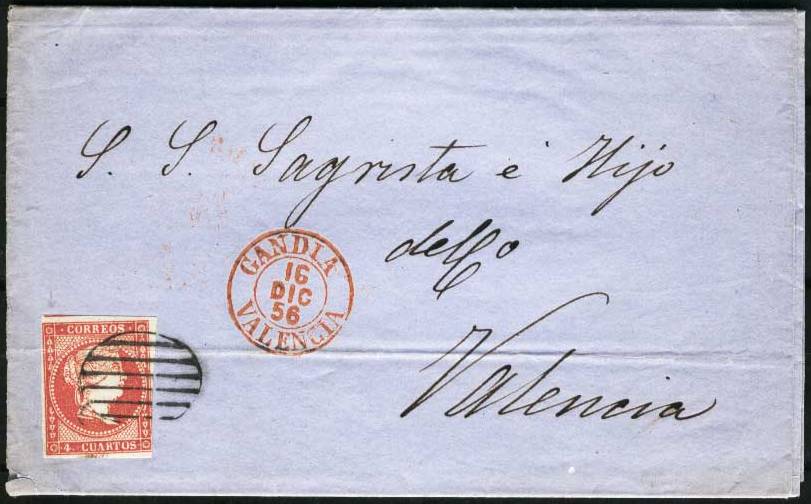 S. S. Sagrista é Hijo
del Co
Valencia
GANDIA
16
DIC
56
VALENCIA
CORREOS
4. CUARTOS